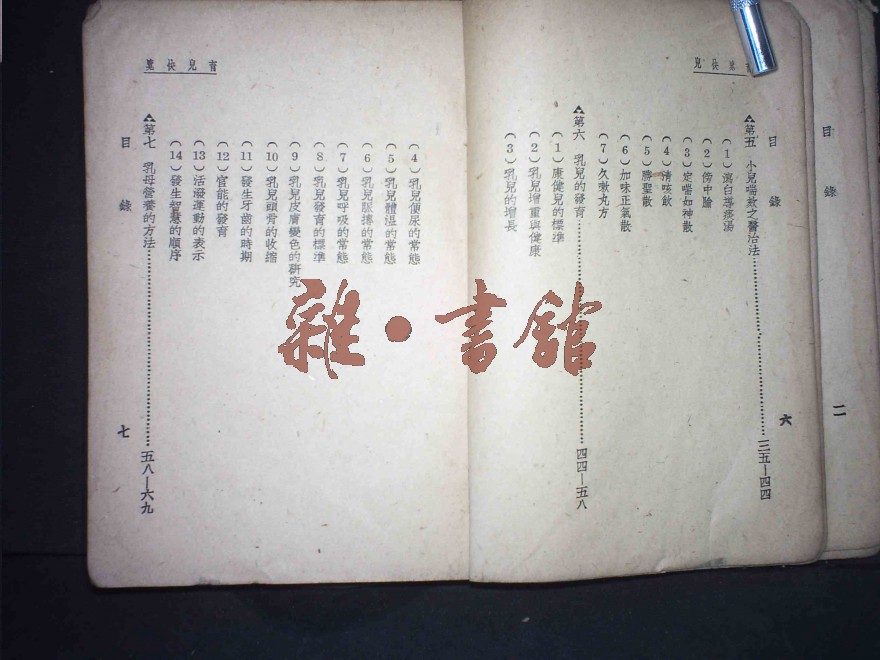 目錄
六
第五 小兒喘欬之醫治法 三五—四四
(1)瀉白導痰湯
(2)傍中論
(3)定喘如神散
(4)清咳飲
(5)勝聖散
(6)加味正氣散
(7)久嗽丸方
第六 乳兒的發育 四四—五八
(1)康健兒的標準
(2)乳兒增重與健康
(3)乳兒的增長
育兒快覽
(4)乳兒便尿的常態
(5)乳兒體溫的常態
(6)乳兒脈搏的常態
(7)乳兒呼吸的常態
(8)乳兒發育的標準
(9)乳兒皮膚變色的研究
(10)乳兒頭骨的收縮
(11)發生牙齒的時期
(12)官能的發育
(13)活潑運動的表示
(14)發生智慧的順序
第七 乳母營養的方法 五八—六九
目錄
七
目錄
二
雜·書館